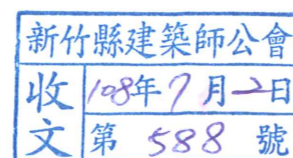 新竹縣建築師公會
收文
108年7月2日
第 588 號